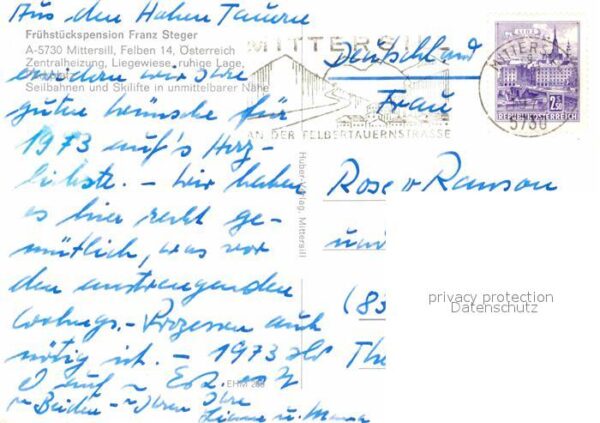 Aus den Hohen Tauern
Frühstückspension Franz Steger
A-5730 Mittersill, Felben 14, Österreich
Zentralheizung, Liegewiese, ruhige Lage,
Seilbahnen und Skilifte in unmittelbarer Nähe
erwidern wir Ihre
guten Wünsche für
1973 auf's Herz-
lichste. - Wir haben
es hier recht ge-
mütlich, was vor
den anstrengenden
Prozessen auch
nötig ist. - 1973 als
MITTERSILL
AN DER FELBERTAUERNSTRASSE
MITTERSILL
5730
2.50
REPUBLIK ÖSTERREICH
Deutschland
Frau
Rose v Ranson
und
(85
The
Huber-Verlag, Mittersill
privacy protection
Datenschutz